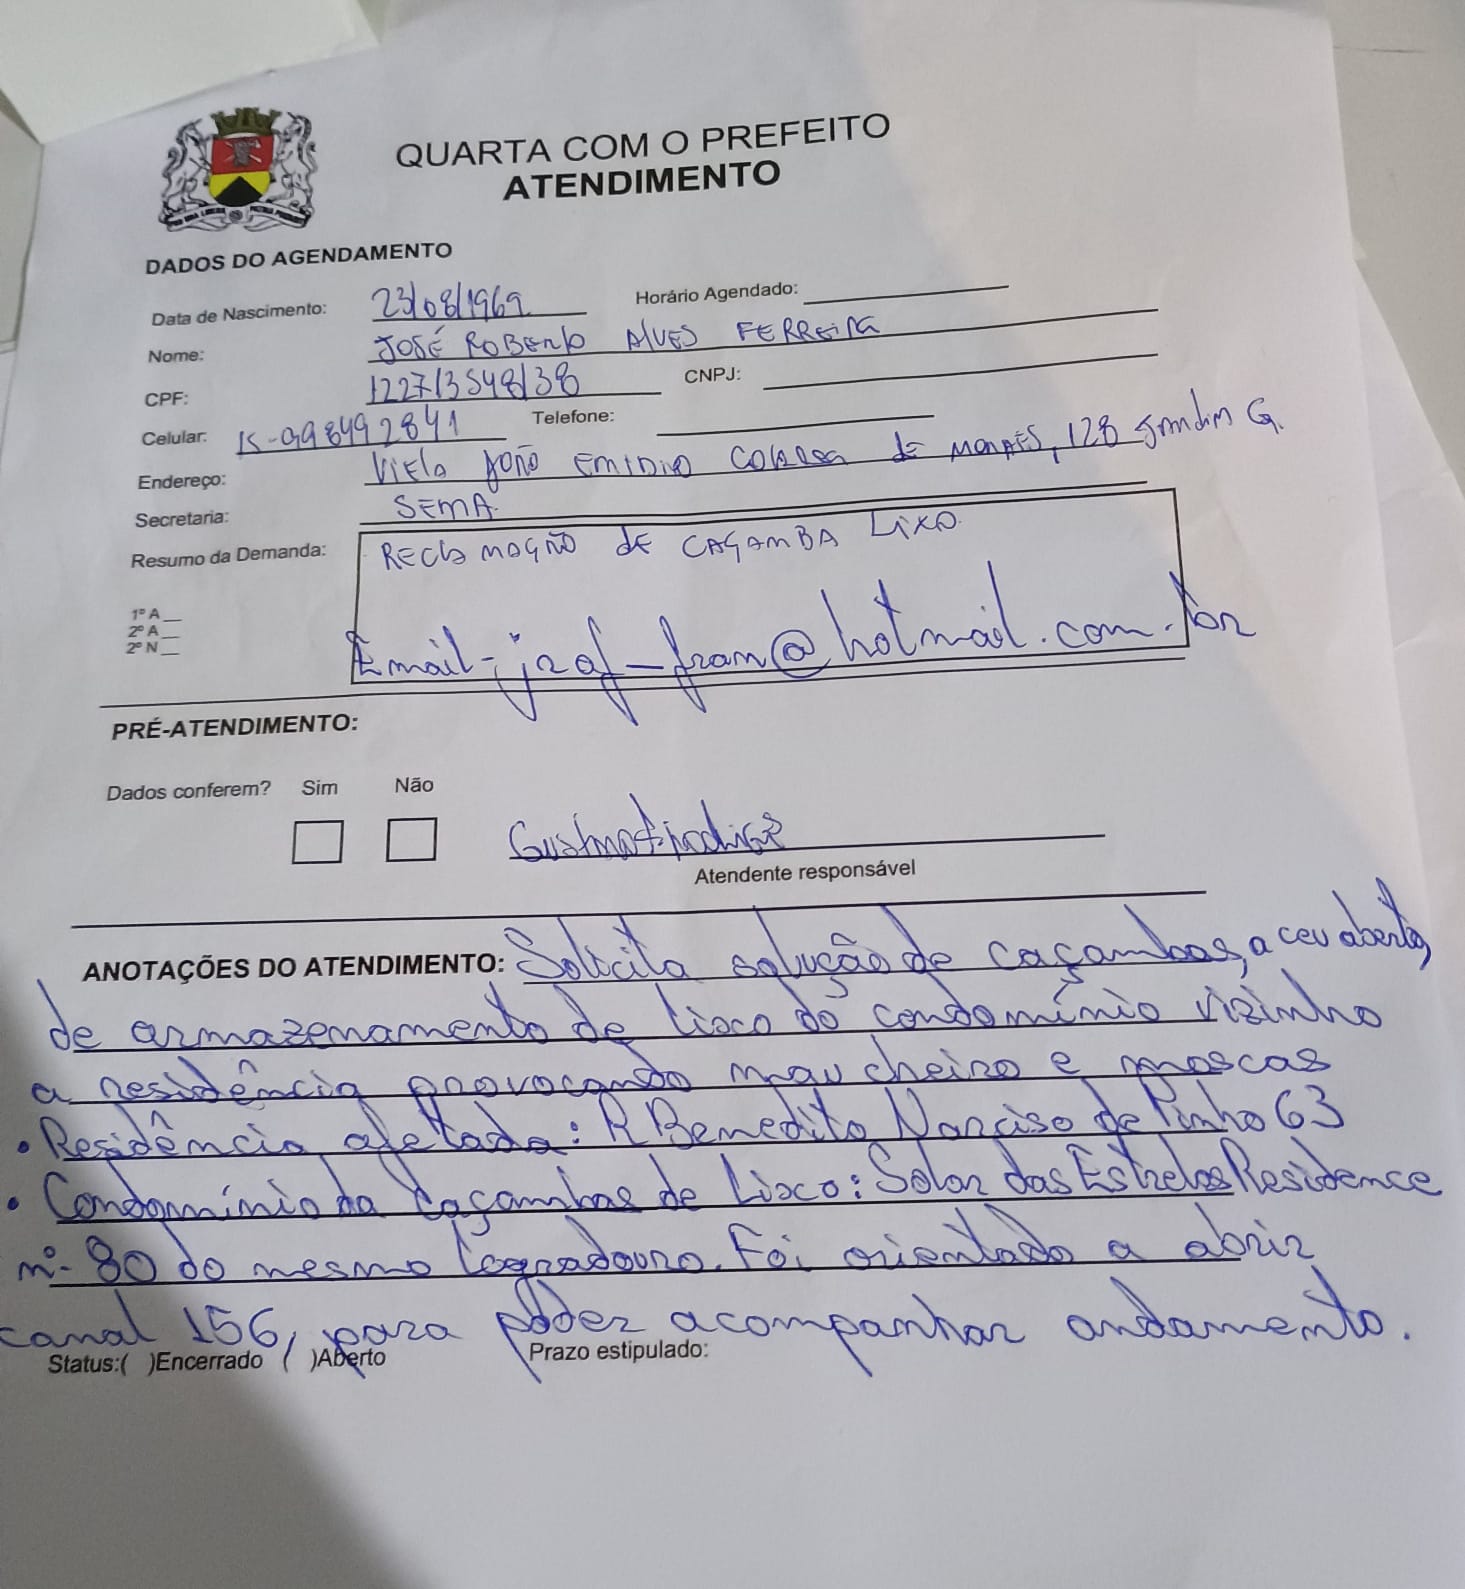 QUARTA COM O PREFEITO
ATENDIMENTO
DADOS DO AGENDAMENTO
Data de Nascimento: 23/08/1969 Horário Agendado:
Nome: JOSÉ ROBERTO ALVES FERREIRA
CPF: 122713548/38 CNPJ:
Celular: 15-998492841 Telefone:
Endereço: Viela João Emidio Correa de Moraes, 128 Jardim G.
Secretaria: SEMA.
Resumo da Demanda: RECLAMAÇÃO DE CAÇAMBA LIXO.
1º A
2º A
2º N
Email-jraf-fram@hotmail.com.br
PRÉ-ATENDIMENTO:
Dados conferem? Sim Não
Atendente responsável
ANOTAÇÕES DO ATENDIMENTO: Solicita solução de caçambas, a ceu aberto,
de armazenamento de lixo do condomínio vizinho
a residência provocando mau cheiro e moscas
• Residência afetada: R Benedito Narciso de Pinho 63
• Condomínio da Caçambas de Lixo: Solar das Estrelas Residence
nº 80 do mesmo logradouro. Foi orientado a abrir
canal 156, para poder acompanhar andamento.
Status:( )Encerrado ( )Aberto Prazo estipulado: